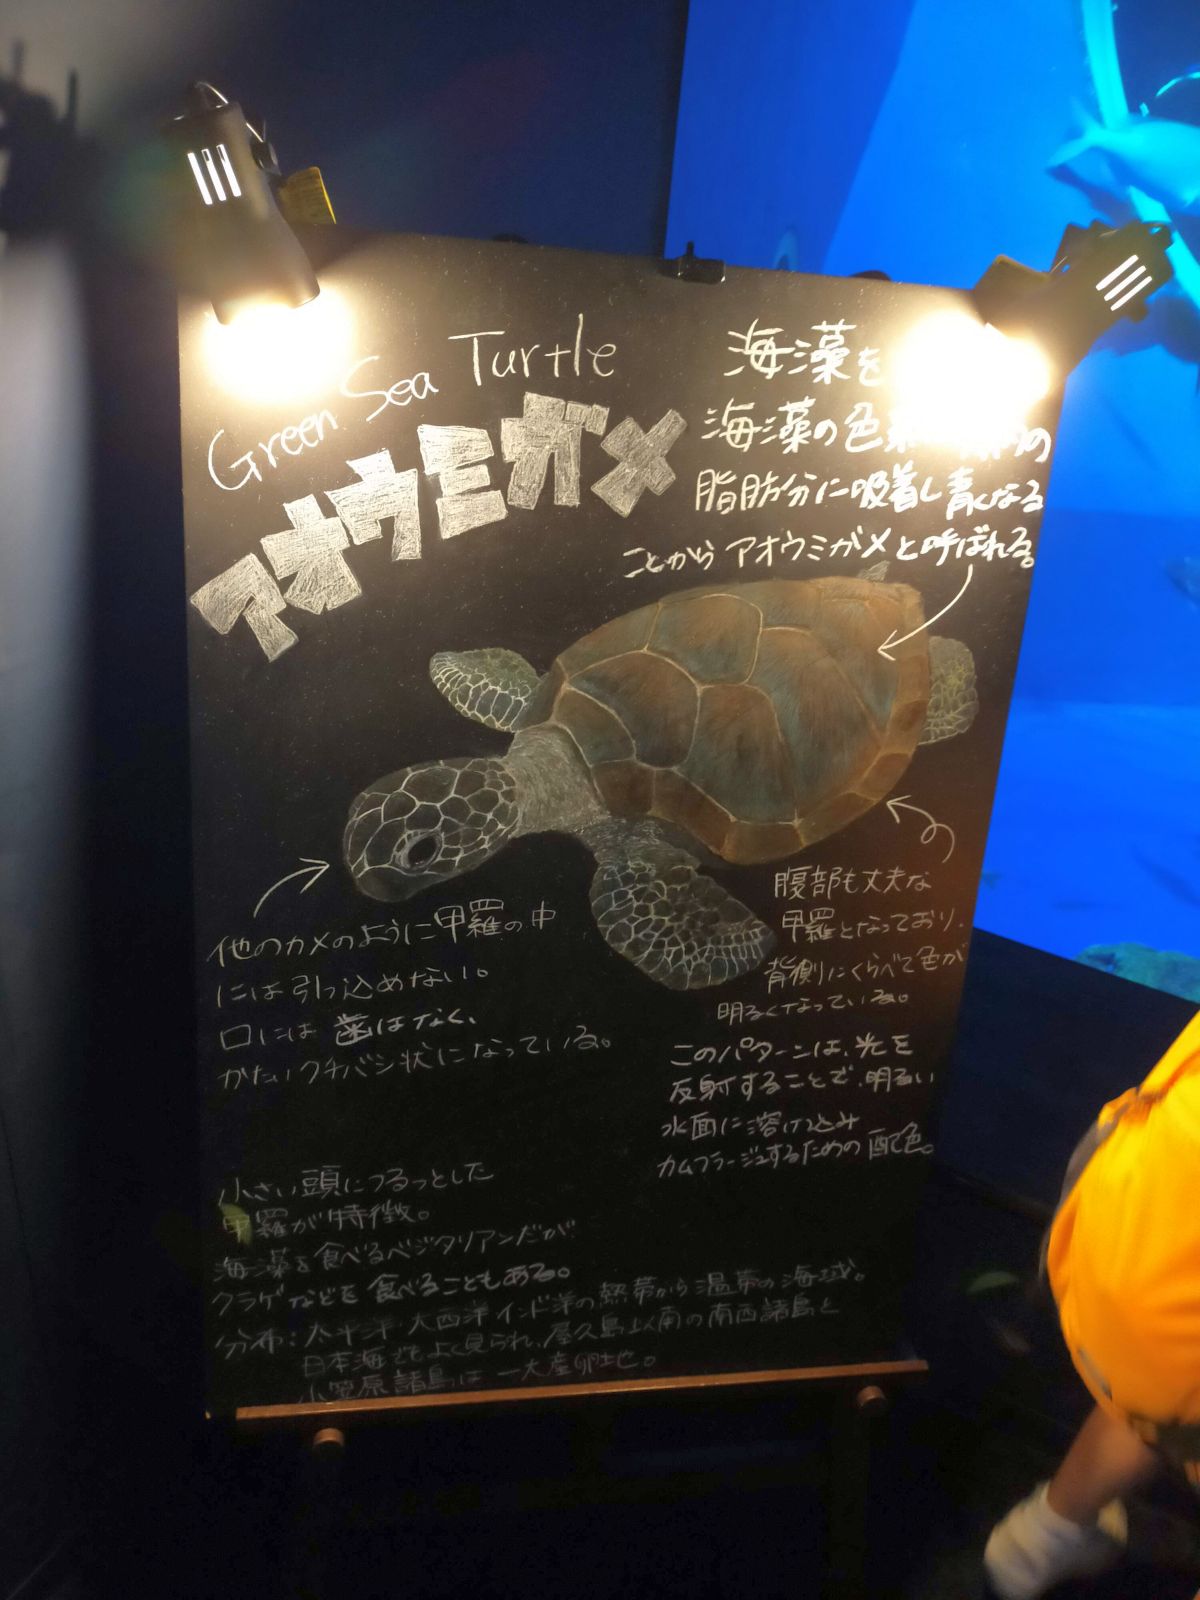 Green Sea Turtle
アオウミガメ
海藻を
海藻の色素
脂肪分に吸着し青くなる
ことからアオウミガメと呼ばれる。
他のカメのように甲羅の中
には引っ込めない。
口には歯はなく、
かたいクチバシ状になっている。
腹部も丈夫な
甲羅となっており、
背側にくらべて色が
明るくなっている。
このパターンは、光を
反射することで、明るい
水面に溶け込み
カムフラージュするための配色。
小さい頭につるっとした
甲羅が特徴。
海藻を食べるベジタリアンだが
クラゲなどを食べることもある。
分布:太平洋・大西洋・インド洋の熱帯から温帯の海域。
日本海でもよく見られ、屋久島以南の南西諸島と
小笠原諸島は一大産卵地。